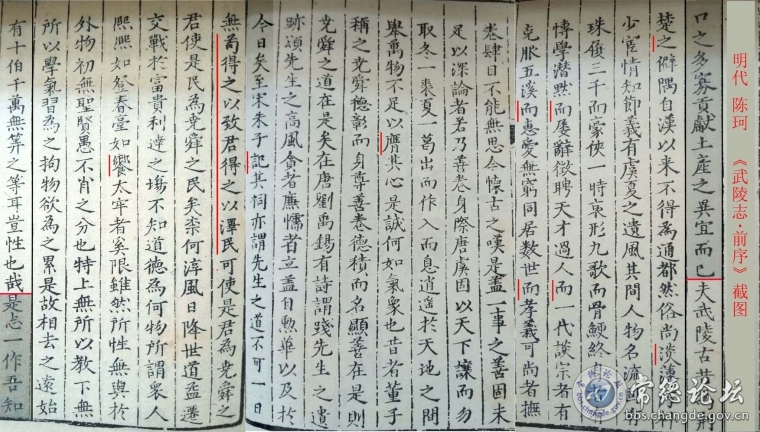 明代 陈珂 《武陵志·前序》截图
口之多寡貢獻土產之異宜而已夫武陵古
楚之僻隅自漢以来不得為通都然俗尚淡薄
少宦情知節義有虞夏之遺風其間人物名流
珠履三千而豪俠一時哀形九歌而骨鯁終
博學潜黙而屢辭徵聘天才過人而一代談宗者有
克服五溪而惠愛無窮同居數世而孝義可尚者撫
卷肆目不能無思今懷古之嘆是盖一事之善固未
足以深論者若乃善卷身際唐虞因以天下讓而勿
取冬一裘夏一葛出而作入而息逍遥於天地之間
舉萬物不足以膺其心是誠何如氣象也昔者董子
稱之堯舜德彰而身尊善卷德積而名顯善在是則
堯舜之道在是矣在唐劉禹錫有詩謂踐先生之遺
跡頌先生之高風貪者廉懦者立盖自勲華以及於
今日矣至宋朱子記其祠亦謂先生之道不可一日
無苟得之以致君得之以澤民可使是君為堯舜之
君使是民為堯舜之民矣柰何淳風日降世道益遷
交戰於富貴利達之塲不知道德為何物所謂衆人
熙熙如登春臺如饗太牢者奚限雖然所性無與於
外物初無聖賢愚不肖之分也特上無所以教下無
所以學氣習為之拘物欲為之累是故相去之遠始
有十伯千萬無筭之等耳豈性也哉是志一作吾知
常德论坛
bbs.changde.gov.cn